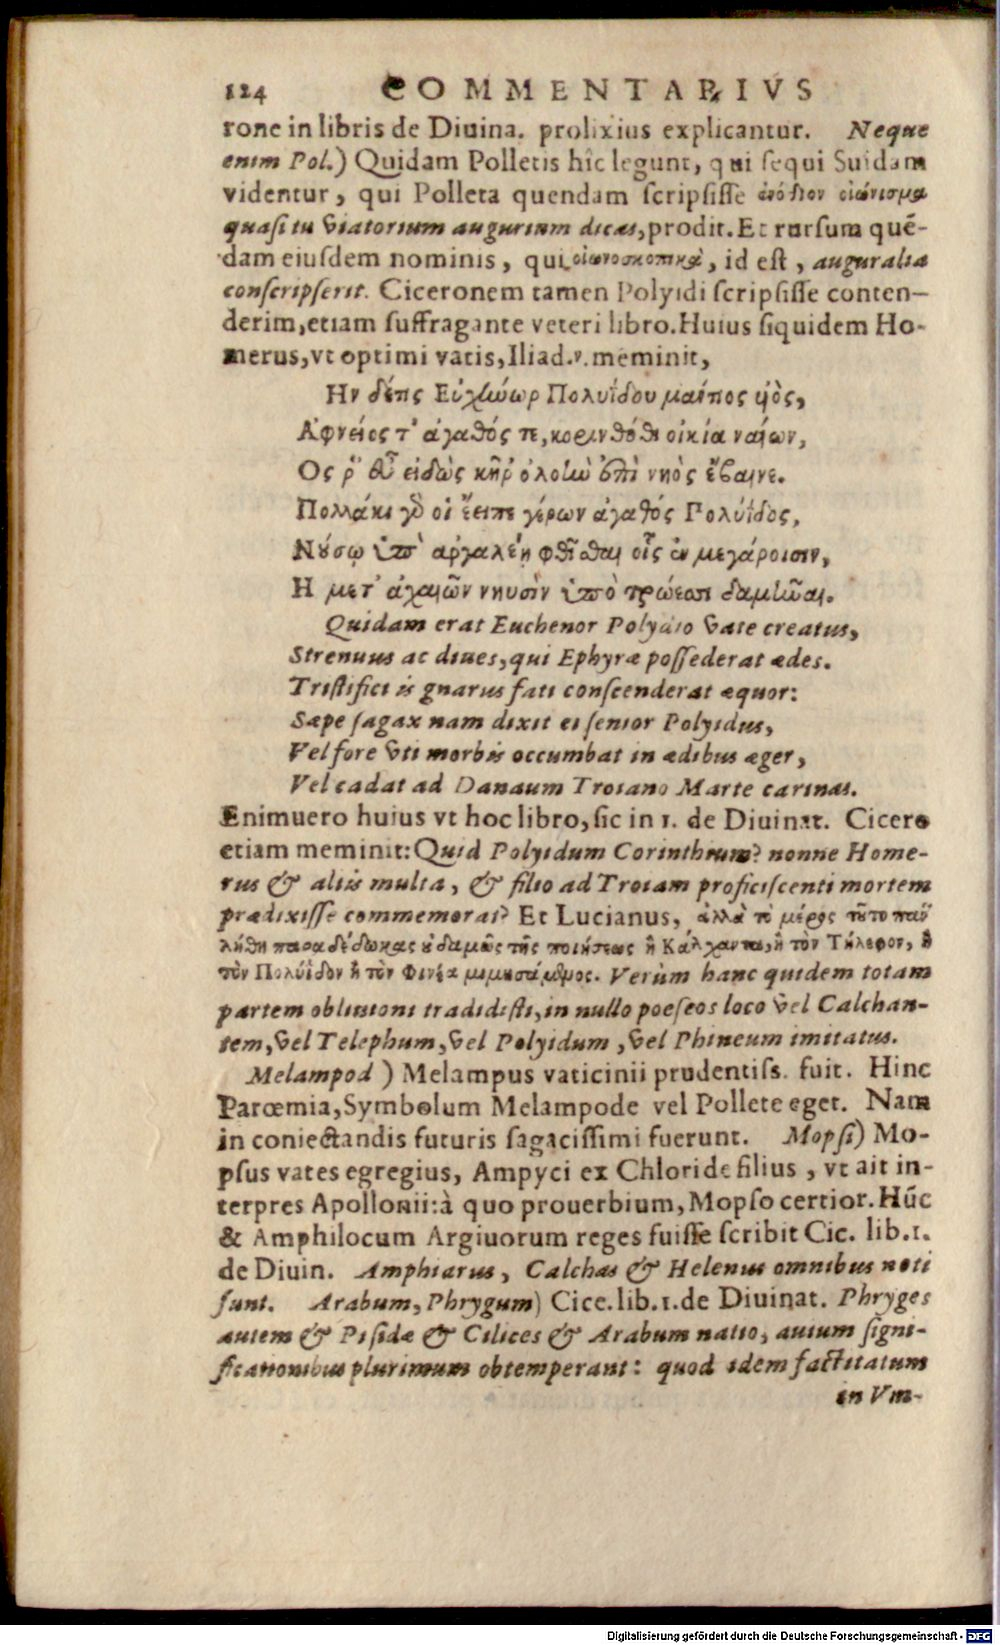 124 COMMENTARIVS
rone in libris de Diuina. prolixius explicantur. Neque
enim Pol.) Quidam Polletis hîc legunt, qui ſequi Suidam
videntur, qui Polleta quendam ſcripſiſſe ἐνόδιον οἰώνισμα
quaſi tu viatorium augurium dicas, prodit. Et rurſum quē-
dam eiuſdem nominis, qui οἰωνοσκοπικὰ, id eſt, auguralia
conſcripſerit. Ciceronem tamen Polyidi ſcripſiſſe conten-
derim, etiam ſuffragante veteri libro. Huius ſiquidem Ho-
merus, vt optimi vatis, Iliad.ν. meminit,
Ην δέ τις Εὐχλώωρ Πολυΐδου μαίντιος υἱὸς,
Αφνειός τ' ἀγαθός τε, κορινθόθι οἰκία ναίων,
Ος ῥ' εὖ εἰδὼς κῆρ' ὀλοὴν ἐπὶ νηὸς ἔβαινε.
Πολλάκι γὸ οἱ ἔειπε γέρων ἀγαθός Πολύϊδος,
Νούσῳ ὑπ' ἀργαλέῃ φθῖσθαι οἷς ἐν μεγάροισιν,
Η μετ' ἀχαιῶν νηυσὶν ὑπὸ τρώεσσι δαμῆναι.
Quidam erat Euchenor Polyido vate creatus,
Strenuus ac diues, qui Ephyræ poſſederat ædes.
Triſtifici is gnarus fati conſcenderat æquor:
Sæpe ſagax nam dixit ei ſenior Polyidus,
Vel fore vti morbis occumbat in ædibus æger,
Vel cadat ad Danaum Troiano Marte carinas.
Enimuero huius vt hoc libro, ſic in 1. de Diuinat. Cicero
etiam meminit: Quid Polyidum Corinthium? nonne Home-
rus & aliis multa, & filio ad Troiam proficiſcenti mortem
prædixiſſe commemorat? Et Lucianus, ἀλλὰ τὸ μέρος τοῦτο παν
λήθῃ παραδέδωκας οὐδαμῶς τῆς ποιήσεως ἢ Κάλχαντα, ἢ τὸν Τήλεφον, ἢ
τὸν Πολύϊδον ἢ τὸν Φινέα μιμησάμενος. Verùm hanc quidem totam
partem obliuioni tradidiſti, in nullo poeſeos loco vel Calchan-
tem, vel Telephum, vel Polyidum, vel Phineum imitatus.
Melampod ) Melampus vaticinii prudentiſs. fuit. Hinc
Parœmia, Symbolum Melampode vel Pollete eget. Nam
in coniectandis futuris ſagaciſſimi fuerunt. Mopſi) Mo-
pſus vates egregius, Ampyci ex Chloride filius, vt ait in-
terpres Apollonii: à quo prouerbium, Mopſo certior. Hūc
& Amphilocum Argiuorum reges fuiſſe ſcribit Cic. lib.1.
de Diuin. Amphiarus, Calchas & Helenus omnibus noti
ſunt. Arabum, Phrygum) Cice. lib.1. de Diuinat. Phryges
autem & Piſidæ & Cilices & Arabum natio, auium ſigni-
ficationibus plurimum obtemperant: quod idem factitatum
in Vm-
Digitalisierung gefördert durch die Deutsche Forschungsgemeinschaft - DFG